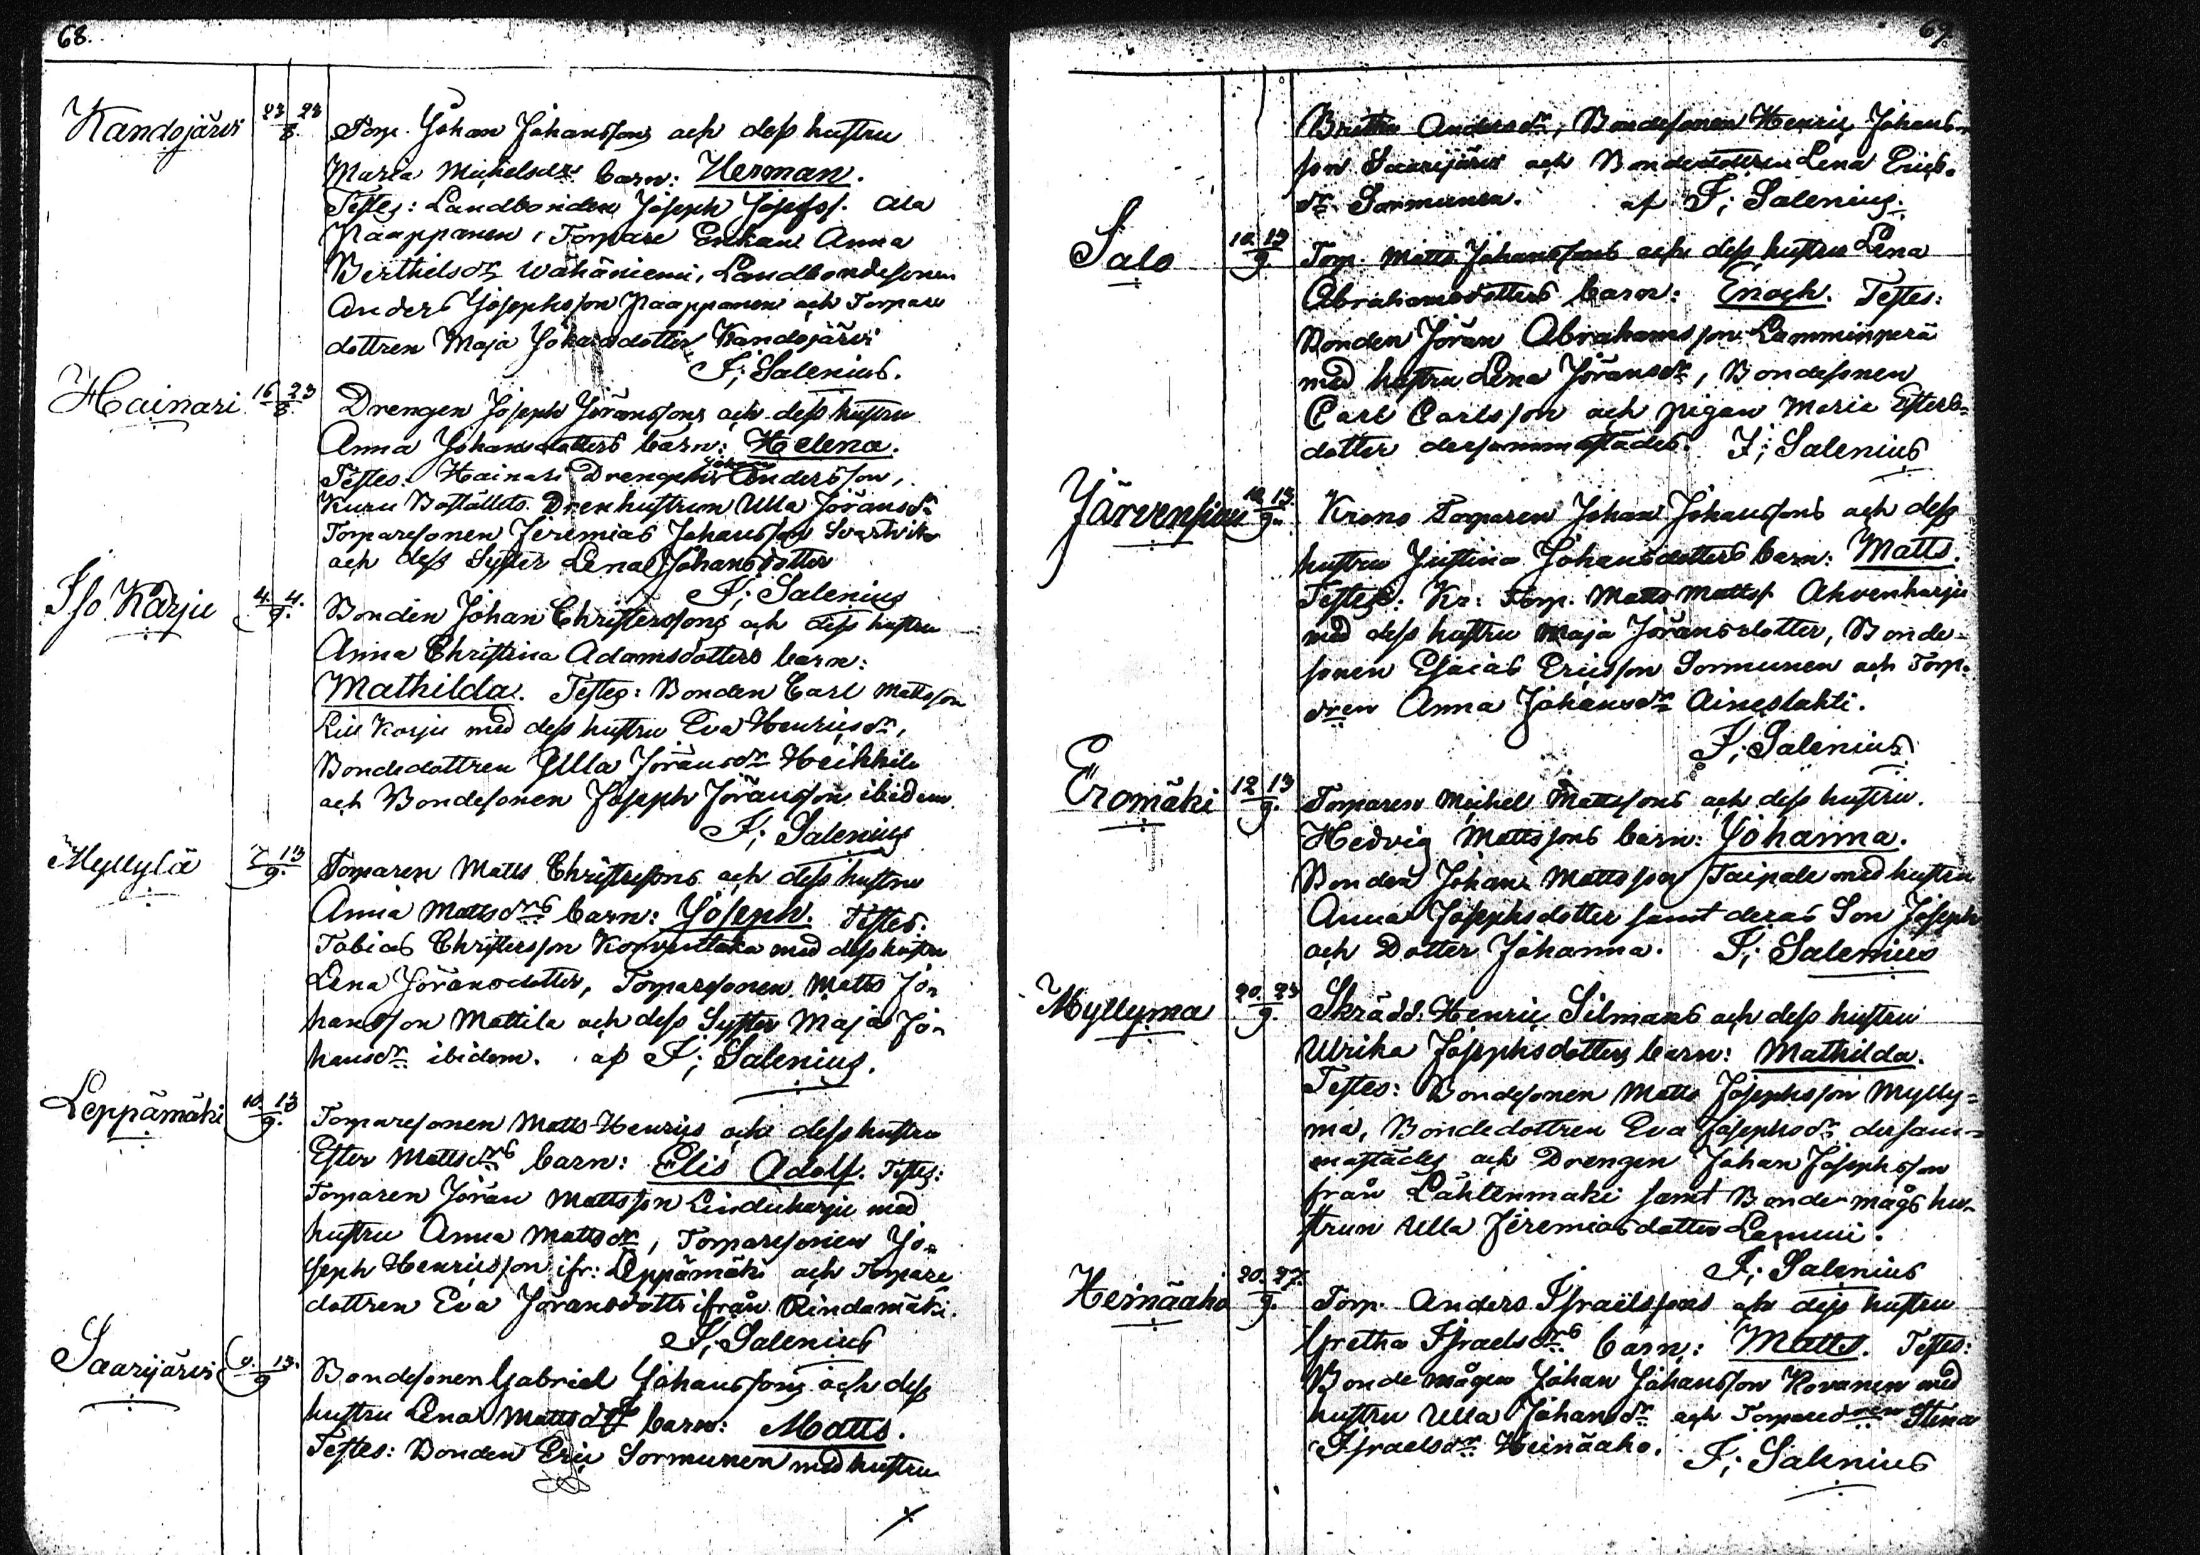 68.
Kandojärvi 23 23/8. Torp. Johan Johanssons och dess hustru
Maria Michelsdrs barn: Herman.
Testes: Landbonden Joseph Josefss. Ala
Naappanen, Torpare Enkan Anna
Berthilsdr Wahäniemi, Landbondesonen
Anders Josephsson Naappanen och Torpare
dottren Maja Johansdotter Kandojärvi
F; Salenius.
Hainari 16 23/8. Drengen Joseph Jöranssons och dess hustru
Anna Johansdotters barn: Helena.
Testes. Hainari Drengen Johan Andersson,
Kuru Boställets Drenhustrun Ulla Jöransdr
Torparesonen Jeremias Johansson Svartvik
och dess Syster Lena Johansdotter
F; Salenius
Iso Karju 4. 4./9. Bonden Johan Christerssons och dess hustru
Anna Christina Adamsdotters barn:
Mathilda. Testes: Bonden Carl Mattsson
Lill Karju med dess hustru Eva Henricsdr,
Bondedottren Ulla Jöransdr Heikkilä
och Bondesonen Joseph Jöransson ibidem.
F; Salenius
Myllylä 7 13/9. Torparen Matts Christerssons och dess hustru
Anna Mattsdrs barn: Joseph. Testes:
Tobias Christersson Korventaka med dess hustru
Lena Jöransdotter, Torparesonen Matts Jo-
hansson Mattila och dess Syster Maja Jo-
hansdr ibidem. af F; Salenius.
Leppämäki 10 13/9. Torparesonen Matts Henrics och dess hustru
Ester Mattsdrs barn: Elis Adolf. Testes:
Torparen Jöran Mattsson Linduharju med
hustru Anna Mattsdr, Torparesonen Jo-
seph Henricsson ifr: Leppämäki och Torpare
dottren Eva Jöransdotter ifrån Rindamäki.
F; Salenius
Saarijärvi 9. 13./9 Bondesonen Gabriel Johanssons och dess
hustru Lena Mattsdrs barn: Matts.
Testes: Bonden Eric Sormunen med hustru
69.
Britha Andersdr, Bondesonen Henric Johans-
son Saarijärvi och Bondedottren Lena Erics-
dr Sormunen. af F; Salenius.
Salo 10 13/9. Torp. Matts Johanssons och dess hustru Lena
Abrahamsdotters barn: Enoch. Testes:
Bonden Jöran Abrahamsson Lamminperä
med hustru Lena Jöransdr, Bondesonen
Carl Carlsson och pigan Maria Esters-
dotter dersammastädes. F; Salenius
Järvensivu 10 13./9. Krono Torparen Johan Johanssons och dess
hustru Justina Johansdotters barn: Matts.
Testes: Kr: Torp. Matts Mattss. Ahvenharju
med dess hustru Maja Jöransdotter, Bonde-
sonen Esaias Ericsson Sormunen och Torp.
dren Anna Johansdr Aineslahti.
F; Salenius
Eromäki 12 13/9. Torparen Michel Mattssons och dess hustru.
Hedvig Mattssons barn: Johanna.
Bonden Johan Mattsson Taipale med hustru
Anna Josephsdotter samt deras Son Joseph
och Dotter Johanna. F; Salenius
Myllyma 20. 23/9. Skrädd. Henric Silmans och dess hustru
Ulrika Josephsdotters barn: Mathilda.
Testes: Bondesonen Matts Josephsson Mylly-
ma, Bondedottren Eva Josephsdr dersam-
mastädes och Drengen Johan Josephsson
från Lähtenmäki samt Bondemågs hu-
strun Ulla Jeremiasdotter Lammi.
F; Salenius
Heinäaho 20. 27./9. Torp. Anders Israelssons och dess hustru
Gretha Israelsdrs barn: Matts. Testes:
Bonde mågen Johan Johansson Kovanen med
hustru Ulla Johansdr och Torparedren Stina
Israelsdr Heinäaho. F; Salenius